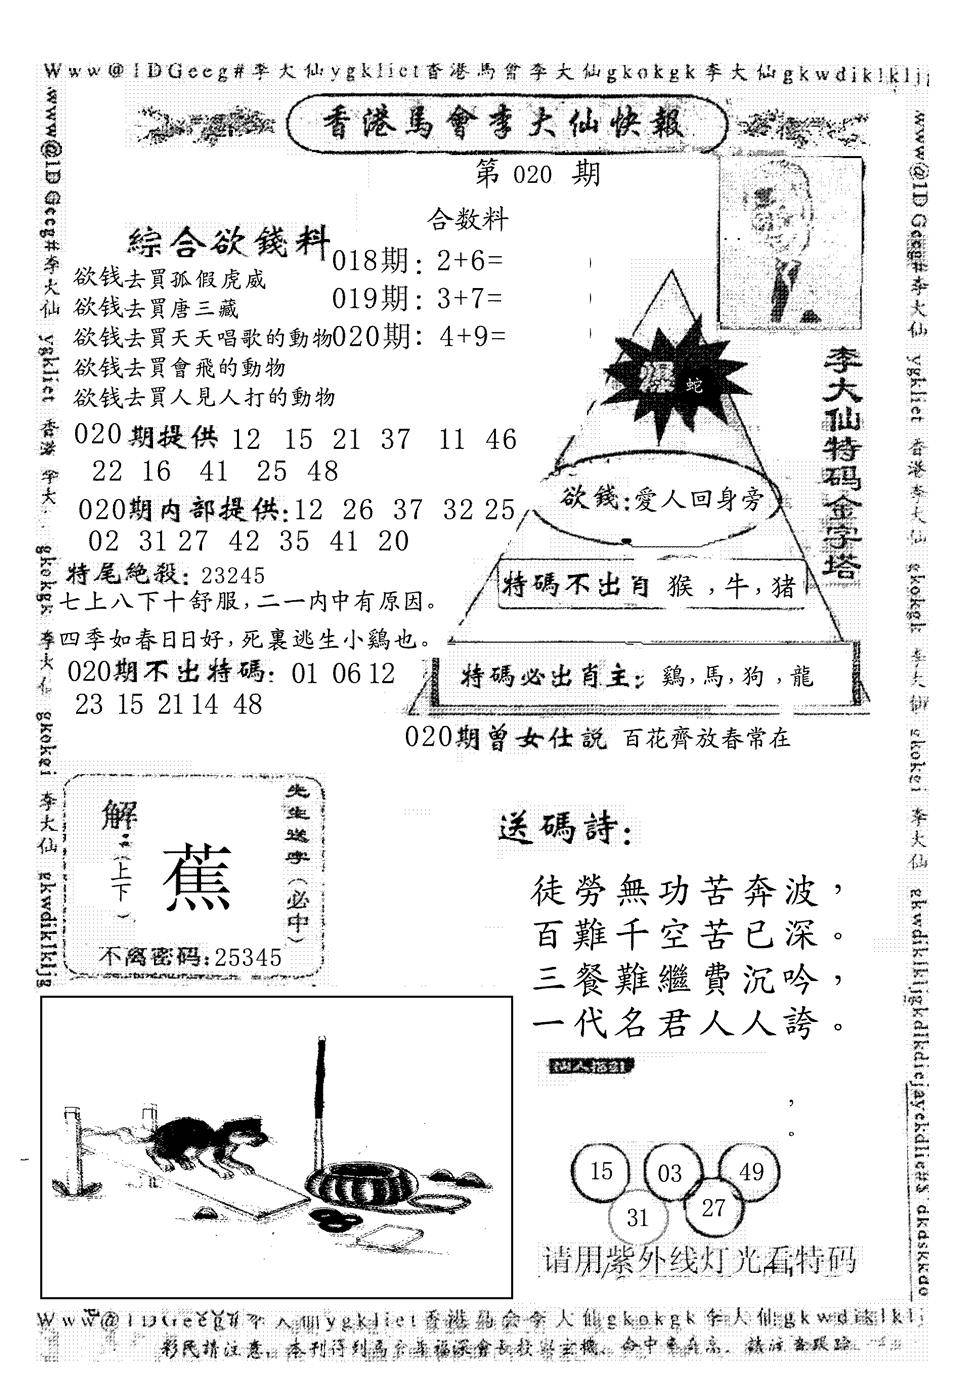 Www@1DGeeg#李大仙ygkliet香港馬會李大仙gkokgk李大仙gkwdiklkljg
香港馬會李大仙快報
第 020 期
合数料
綜合欲錢料
018期: 2+6=
019期: 3+7=
020期: 4+9=
欲钱去買孤假虎威
欲钱去買唐三藏
欲钱去買天天唱歌的動物
欲钱去買會飛的動物
欲钱去買人見人打的動物
020期提供 12 15 21 37 11 46
22 16 41 25 48
020期内部提供:12 26 37 32 25
02 31 27 42 35 41 20
特尾絶殺: 23245
七上八下十舒服,二一内中有原因。
四季如春日日好,死裏逃生小鷄也。
020期不出特碼: 01 06 12
23 15 21 14 48
爆 蛇
欲錢:愛人回身旁
特碼不出肖 猴,牛,猪
特碼必出肖主: 鷄,馬,狗,龍
李大仙特码金字塔
020期曾女仕説 百花齊放春常在
先生送字(必中)
解:(上下)
蕉
不离密码:25345
送碼詩:
徒勞無功苦奔波,
百難千空苦已深。
三餐難繼費沉吟,
一代名君人人誇。
,
。
15 03 49
31 27
请用紫外线灯光看特码
www@1DGeeg#李大仙 ygkliet 香港 李大 gkokgk 李大仙 gkokei 李大仙 gkwdiklkljg
www@1DGeeg#李大仙 ygkliet 香港李大仙 gkokgk 李大仙 gkokei 李大仙 gkwdiklkljgkdlkdiejayekdlle#$ dkdskkdo
Www@1DGeeg#李大仙ygkliet香港馬会李大仙gkokgk李大仙gkwdiklklj
彩民請注意,本刊得到馬会